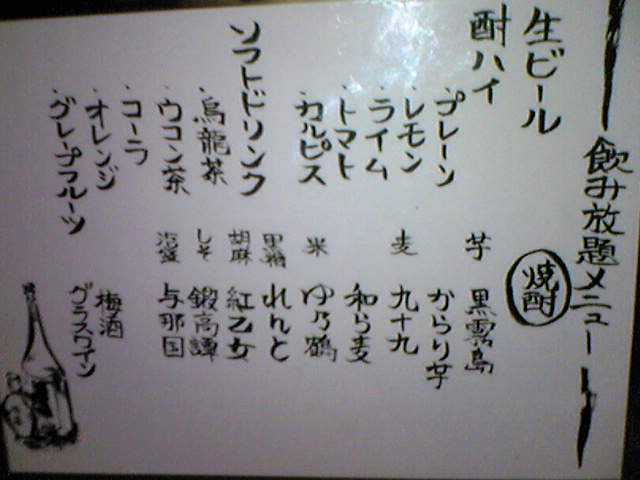 飲み放題メニュー
生ビール
酎ハイ
・プレーン
・レモン
・ライム
・トマト
・カルピス
ソフトドリンク
・烏龍茶
・ウコン茶
・コーラ
・オレンジ
・グレープフルーツ
焼酎
芋 黒霧島
からり芋
麦 九十九
和ら麦
米 ゆ乃鶴
黒糖 れんと
胡麻 紅乙女
しそ 鍛高譚
泡盛 与那国
梅酒
グラスワイン